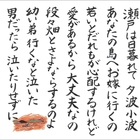 瀬戸は日暮れて夕波小波
あなたの島へお嫁に行くの
若いとだれもが心配するけれど
愛があるから大丈夫なの
段々畑とさよならするのよ
幼い弟行くなと泣いた
男だったら泣いたりせずに